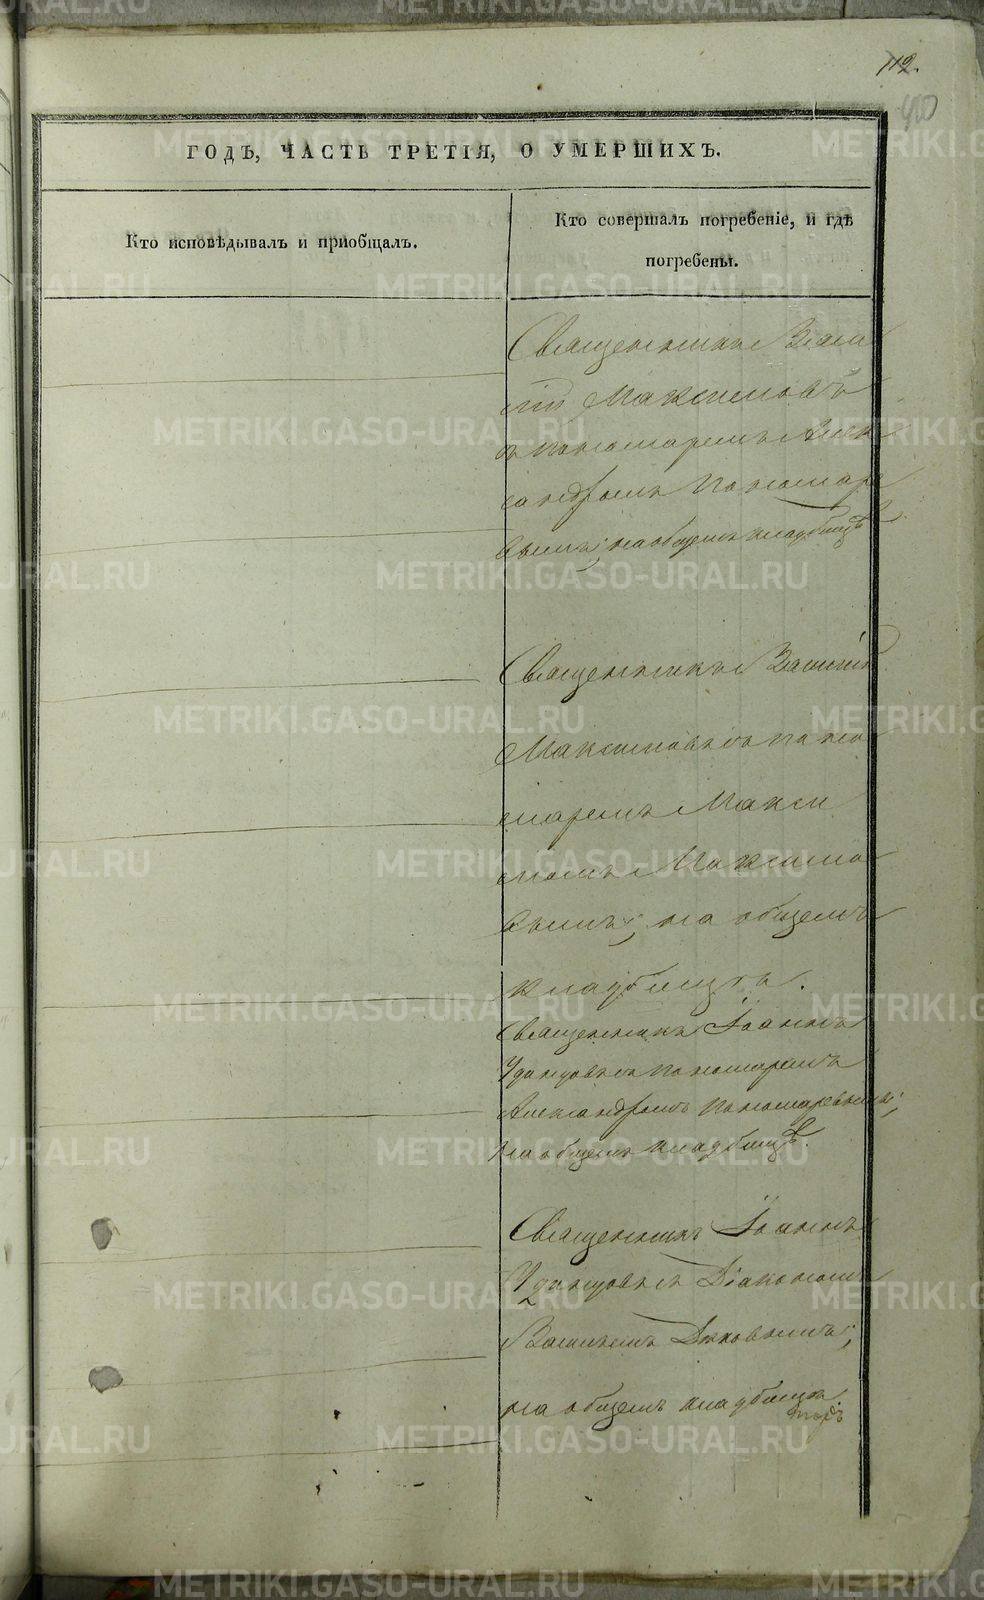 112.
ГОДЪ, ЧАСТЬ ТРЕТІЯ, О УМЕРШИХЪ.
Кто исповѣдывалъ и приобщалъ.
Кто совершалъ погребеніе, и гдѣ
погребены.
Священникъ Васи
лій Максимовъ
съ пономаремъ Алек
сандромъ Пономаре
вымъ; на общемъ кладбищѣ
Священникъ Василій
Максимовъ съ поно
маремъ Макси
момъ Максимо
вымъ; на общемъ
кладбищѣ.
Священникъ Іоаннъ
съ пономаремъ
Александромъ Пономаревымъ;
на общемъ кладбищѣ.
Священникъ Іоаннъ
съ Діакономъ
Василіемъ
на общемъ кладбищѣ
METRIKI.GASO-URAL.RU